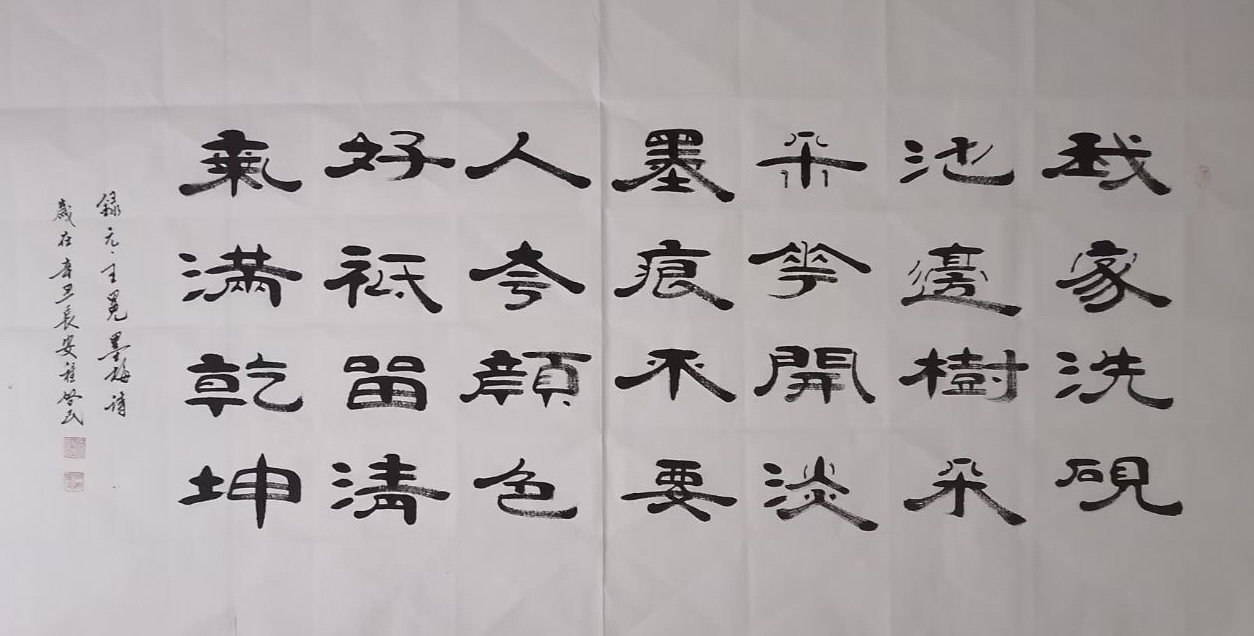 我家洗硯
池邊樹朵
朵華開淡
墨痕不要
人夸顏色
好祇留清
氣滿乾坤
錄元王冕墨梅詩
歲在辛丑長安程啟民